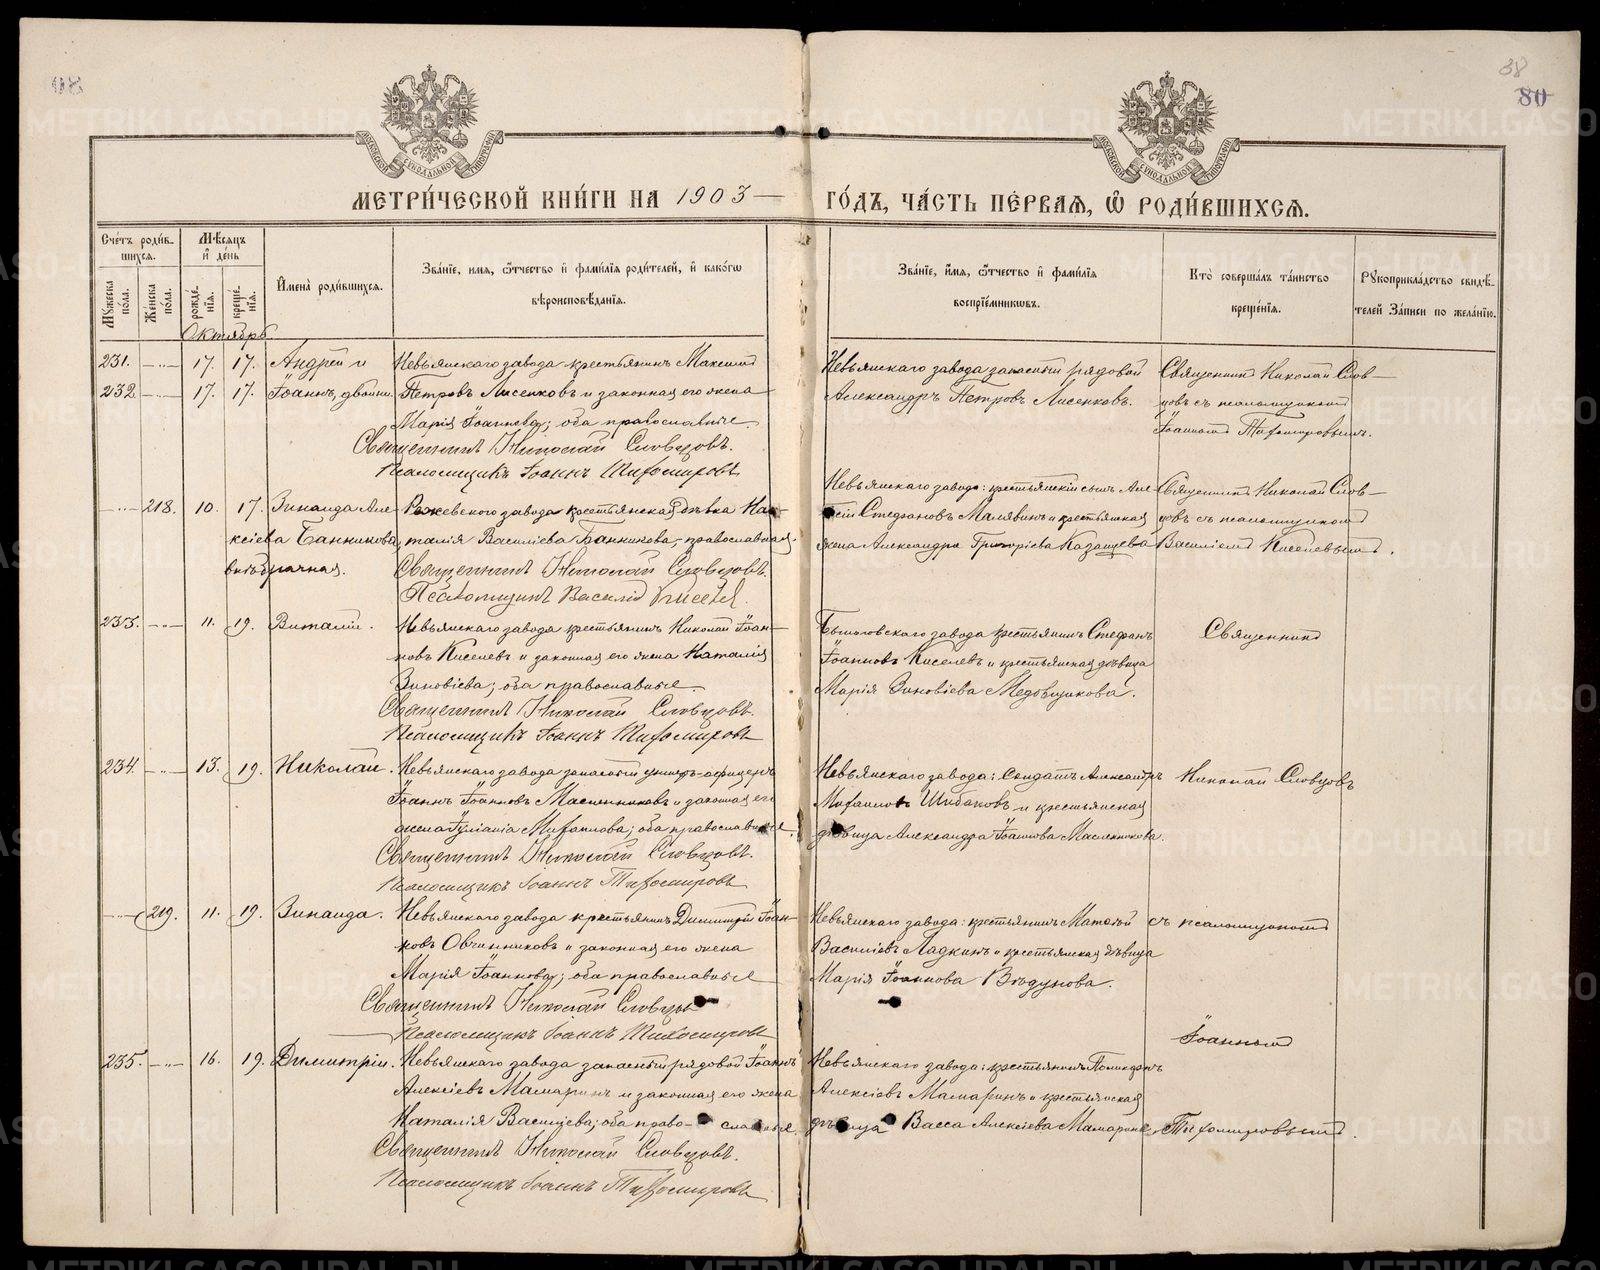 38
80
МЕТРИ́ЧЕСКОЙ КНИ́ГИ НА 1903 ГО́ДЪ, ЧА́СТЬ ПЕ́РВАѦ, Ѡ РОДИ́ВШИХСѦ.
Сче́тъ роди́вшихсѧ.
Мꙋжеска по́ла.
Женска пола.
Мѣ́сѧцъ и де́нь
рожде́нїѧ.
креще́нїѧ.
Имена̀ роди́вшихсѧ.
Зва́нїе, имѧ, ѻтчество и фами́лїѧ роди́телей, и како́гѡ вѣроисповѣ́данїѧ.
Зва́нїе, и́мѧ, ѻтчество и фами́лїѧ воспрїе́мникѡвъ.
Кто̀ соверша́лъ та́инство креще́нїѧ.
Рꙋкоприкла́дство свидѣ́телей За́писи по жела́нїю.
Октябрь
231. 17. 17. Андрей и
232. 17. 17. Іоаннъ, двойни.
Невьянскаго завода крестьянинъ Максимъ
Петровъ Лисенковъ и законная его жена
Марія Іоаннова; оба православные.
Священникъ Николай Словцовъ.
Псаломщикъ Іоаннъ Тихомировъ
Невьянскаго завода запасный рядовой
Александръ Петровъ Лисенковъ.
Священникъ Николай Слов-
цовъ съ псаломщикомъ
Іоанномъ Тихомировымъ.
218. 10. 17. Зинаида Але-
ксіева Банникова,
внѣбрачная.
завода крестьянская дѣвка На-
талія Василіева Банникова, православная.
Священникъ Николай Словцовъ.
Псаломщикъ Василій Киселев
Невьянскаго завода: крестьянскій сынъ Але-
ксій Стефановъ Малявинъ и крестьянская
жена Александра Григорієва Казанцева
Священникъ Николай Слов-
цовъ съ псаломщикомъ
Василіемъ Киселевымъ.
233. 11. 19. Виталій.
Невьянскаго завода крестьянинъ Николай Іоан-
новъ Киселевъ и законная его жена Наталія
Зиновіева; оба православные.
Священникъ Николай Словцовъ.
Псаломщикъ Іоаннъ Тихомировъ
завода крестьянинъ Стефанъ
Іоанновъ Киселевъ и крестьянская дѣвица
Марія Зиновіева Медовщикова.
Священникъ
234. 13. 19. Николай.
Невьянскаго завода запасный унтеръ-офицеръ
Іоаннъ Іоанновъ Масленниковъ и законная его
жена Іуліанія Михаилова; оба православные.
Священникъ Николай Словцовъ.
Псаломщикъ Іоаннъ Тихомировъ
Невьянскаго завода: Солдатъ Александръ
Михаиловъ Шибаковъ и крестьянская
дѣвица Александра Іоаннова Масленникова.
Николай Словцовъ
219. 11. 19. Зинаида.
Невьянскаго завода крестьянинъ Димитрій Іоан-
новъ Овчинниковъ и законная его жена
Марія Іоаннова; оба православные
Священникъ Николай Словцовъ
Псаломщикъ Іоаннъ Тихомировъ
Невьянскаго завода: крестьянинъ Матвѣй
Василіевъ Ладкинъ и крестьянская дѣвица
Марія Іоаннова Вѣдунова.
съ псаломщикомъ
Іоанномъ
235. 16. 19. Димитрій.
Невьянскаго завода запасный рядовой Іоаннъ
Алексіевъ Мамаринъ и законная его жена
Наталія Василіева; оба православные.
Священникъ Николай Словцовъ.
Псаломщикъ Іоаннъ Тихомировъ
Невьянскаго завода: крестьянинъ
Алексіевъ Мамаринъ и крестьянская
дѣвица Васса Алексіева Мамарина
Тихомировымъ.
METRIKI.GASO-URAL.RU